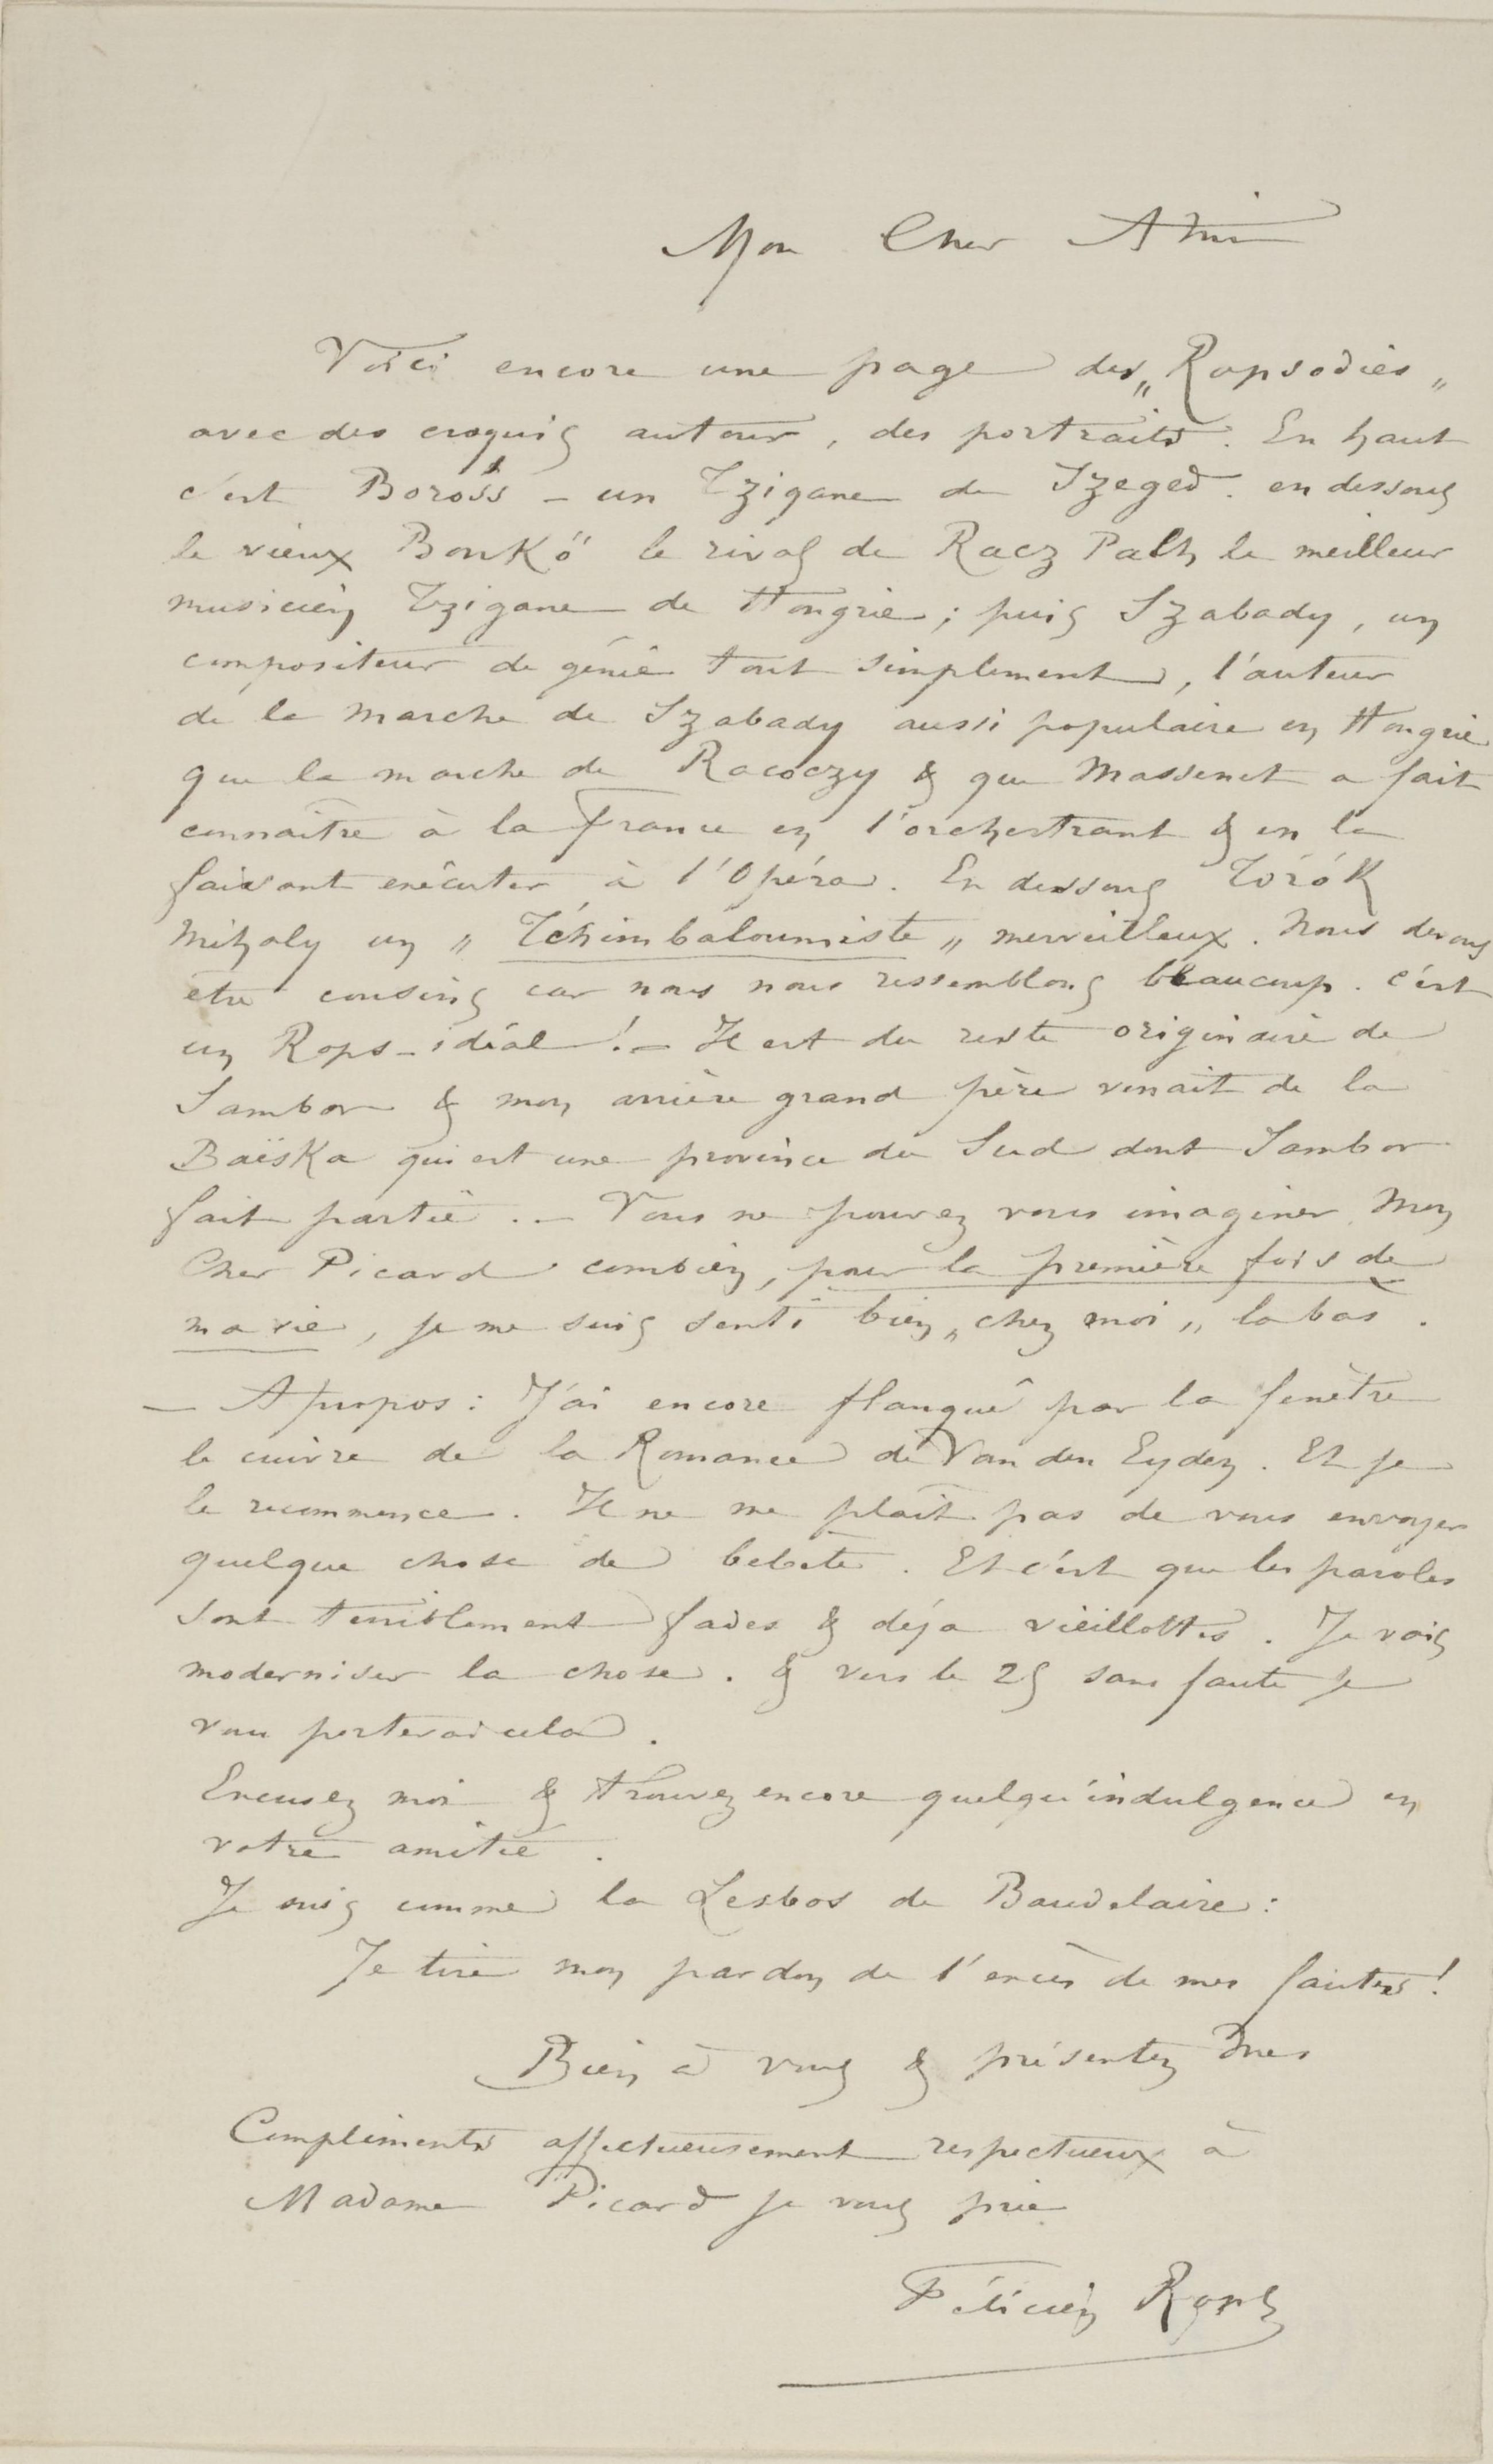 Mon Cher Ami
Voici encore une page des „Rapsodies„
avec des croquis autour, des portraits. En haut
c'est Boross – un Tzigane de Szeged. en dessous
le vieux Bonkö le rival de Racz Palh, le meilleur
musicien Tzigane de Hongrie ; puis Szabady, un
compositeur de génie tout simplement, l'auteur
de la marche de Szabady aussi populaire en Hongrie
que la marche de Racoczy & que Massenet a fait
connaître à la France en l'orchestrant & en la
faisant exécuter à l'Opéra. En dessous Török
Mihaly un „ Tchimbaloumiste „ merveilleux. Nous devons
etre cousins car nous nous ressemblons beaucoup. c'est
un Rops-idéal ! – Il est du reste originaire de
Sambor & mon arrière grand père venait de la
Baïska qui est une province du Sud dont Sambor
fait partie. – Vous ne pouvez vous imaginer Mon
Cher Picard combien, pour la première fois de
ma vie, je me suis senti bien „chez moi„ la bas.
– A propos : J'ai encore flanqué par la fenêtre
le cuivre de la Romance de Van den Eyden. Et je
le recommence. Il ne me plaît pas de vous envoyer
quelque chose de bebete. Et c'est que les paroles
sont terriblement fades & déja vieillottes. Je vais
moderniser la chose. & vers le 25 sans faute je
vous porterai cela.
Excusez moi & trouvez encore quelqu'indulgence en
votre amitié.
Je suis comme la Lesbos de Baudelaire :
Je tire mon pardon de l'excès de mes fautes !
Bien à vous & présentez mes
Compliments affectueusement respectueux à
Madame Picard je vous prie
Félicien Rops